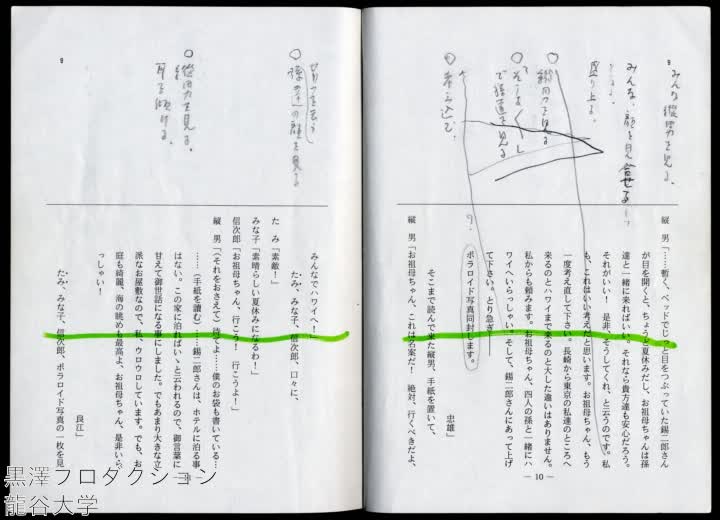 みんな縦男を見る。
みんな、顔を見合せる
盛り上る。
考え込む。
縦　男「……暫く、ベッドでじっと目をつぶっていた錫二郎さん
が目を開くと、ちょうど夏休みだし、お祖母ちゃんは孫
達と一緒に来ればいい。それなら貴方達も安心だろう。
それがいい！　是非、そうしてくれ、と云うのです。私
も、これはいい考えだと思います。お祖母ちゃん、もう
一度考え直して下さい。長崎から東京の私達のところへ
来るのとハワイまで来るのと大した違いはありません。
私からも頼みます。お祖母ちゃん、四人の孫と一緒にハ
ワイへいらっしゃい。そして、錫二郎さんにあって上げ
て下さい。とり急ぎ
ポラロイド写真同封します。
忠雄」
そこまで読んで来た縦男、手紙を置いて、
縦　男「お祖母ちゃん、これは名案だ！　絶対、行くべきだよ、
― 10 ―
9
縦男を見る。
耳を傾ける。
みんなでハワイへ！」
たみ、みな子、信次郎、口々に、
た　み「素敵！」
みな子「素晴らしい夏休みになるわ！」
信次郎「お祖母ちゃん、行こう！　行こうよ！」
縦　男「（それをおさえて）待てよ……僕のお袋も書いている…
……（手紙を読む）……錫二郎さんは、ホテルに泊る事、
はない。この家に泊ればいゝと云われるので、御言葉に
甘えて御世話になる事にしました。でもあまり大きな立
派なお屋敷なので、私、ウロウロしています。でも、お
庭も綺麗、海の眺めも最高よ、お祖母ちゃん、是非いら
っしゃい！
良江」
たみ、みな子、信次郎、ポラロイド写真の一枚を見
黒澤プロダクション
龍谷大学